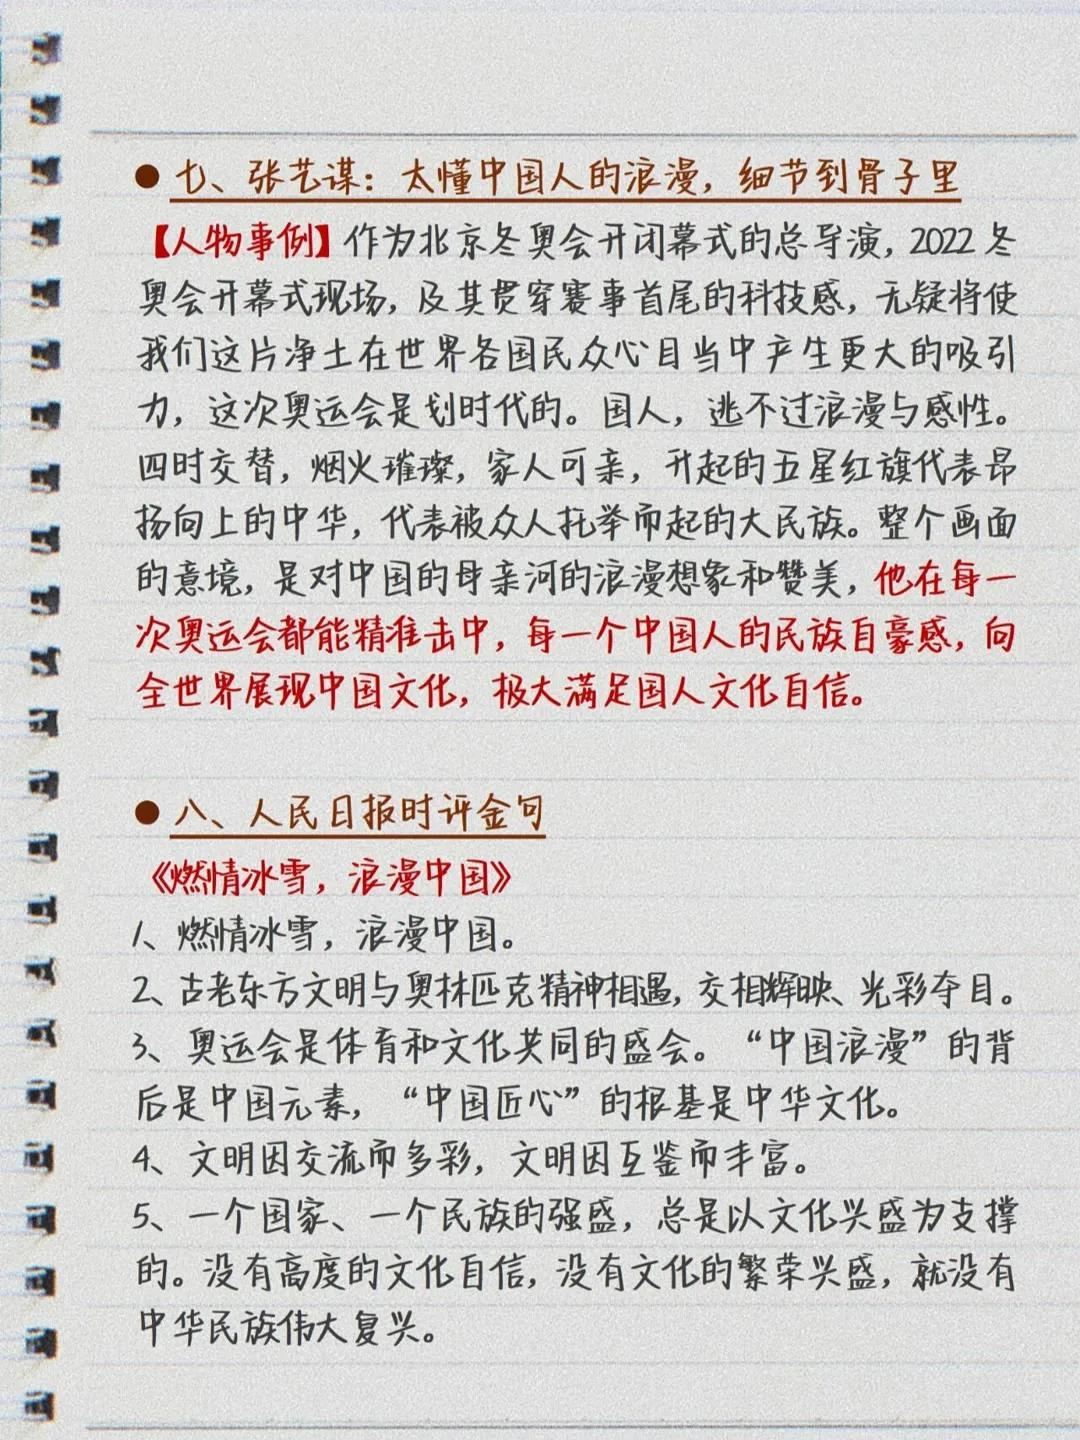 七、张艺谋：太懂中国人的浪漫，细节到骨子里
【人物事例】作为北京冬奥会开闭幕式的总导演，2022 冬
奥会开幕式现场，及其贯穿赛事首尾的科技感，无疑将使
我们这片净土在世界各国民众心目当中产生更大的吸引
力，这次奥运会是划时代的。国人，逃不过浪漫与感性。
四时交替，烟火璀璨，家人可亲，升起的五星红旗代表昂
扬向上的中华，代表被众人托举而起的大民族。整个画面
的意境，是对中国的母亲河的浪漫想象和赞美，他在每一
次奥运会都能精准击中，每一个中国人的民族自豪感，向
全世界展现中国文化，极大满足国人文化自信。
八、人民日报时评金句
《燃情冰雪，浪漫中国》
1、燃情冰雪，浪漫中国。
2、古老东方文明与奥林匹克精神相遇，交相辉映、光彩夺目。
3、奥运会是体育和文化共同的盛会。“中国浪漫”的背
后是中国元素，“中国匠心”的根基是中华文化。
4、文明因交流而多彩，文明因互鉴而丰富。
5、一个国家、一个民族的强盛，总是以文化兴盛为支撑
的。没有高度的文化自信，没有文化的繁荣兴盛，就没有
中华民族伟大复兴。